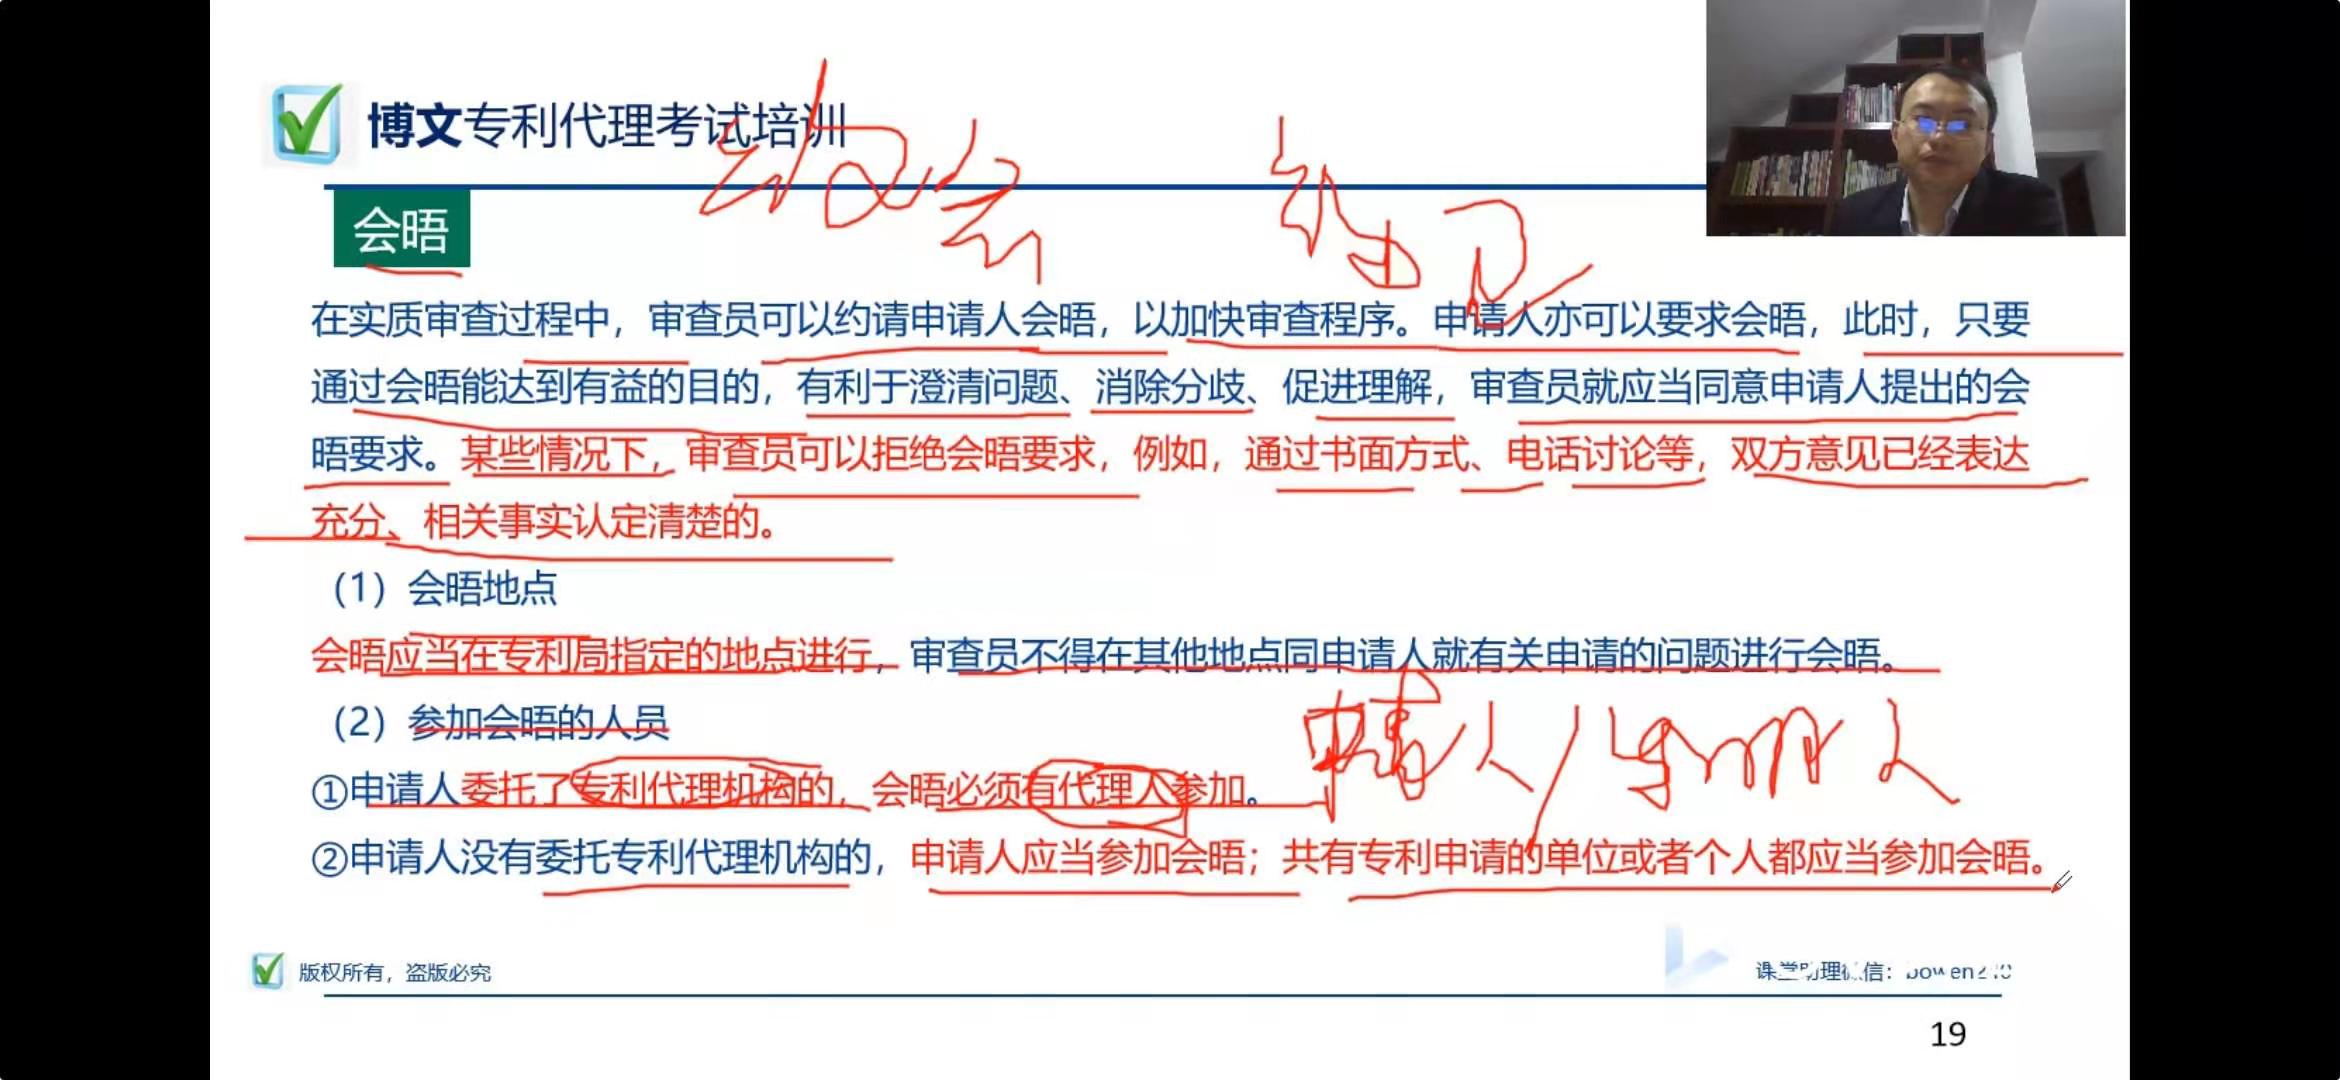 博文专利代理考试培训
会晤
在实质审查过程中，审查员可以约请申请人会晤，以加快审查程序。申请人亦可以要求会晤，此时，只要
通过会晤能达到有益的目的，有利于澄清问题、消除分歧、促进理解，审查员就应当同意申请人提出的会
晤要求。某些情况下，审查员可以拒绝会晤要求，例如，通过书面方式、电话讨论等，双方意见已经表达
充分、相关事实认定清楚的。
（1）会晤地点
会晤应当在专利局指定的地点进行，审查员不得在其他地点同申请人就有关申请的问题进行会晤。
（2）参加会晤的人员
申请人/发明人
①申请人委托了专利代理机构的，会晤必须有代理人参加。
②申请人没有委托专利代理机构的，申请人应当参加会晤；共有专利申请的单位或者个人都应当参加会晤。
版权所有，盗版必究
课堂助理微信：
19